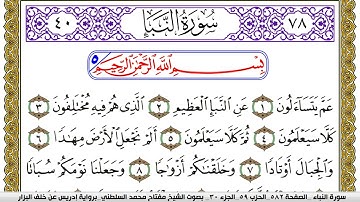 ٧٨ سُورَةُ النَّبَإِ ٤٠
بِسْمِ اللَّهِ الرَّحْمَٰنِ الرَّحِيمِ
عَمَّ يَتَسَاءَلُونَ ١ عَنِ النَّبَإِ الْعَظِيمِ ٢ الَّذِي هُمْ فِيهِ مُخْتَلِفُونَ ٣
كَلَّا سَيَعْلَمُونَ ٤ ثُمَّ كَلَّا سَيَعْلَمُونَ ٥ أَلَمْ نَجْعَلِ الْأَرْضَ مِهَادًا ٦
وَالْجِبَالَ أَوْتَادًا ٧ وَخَلَقْنَاكُمْ أَزْوَاجًا ٨ وَجَعَلْنَا نَوْمَكُمْ سُبَاتًا
سورة النباء . الصفحة ٥٨٢ الحزب ٥٩ . الجزء ٣٠ . بصوت الشيخ مفتاح محمد السلطني برواية إدريس عن خلف البزار